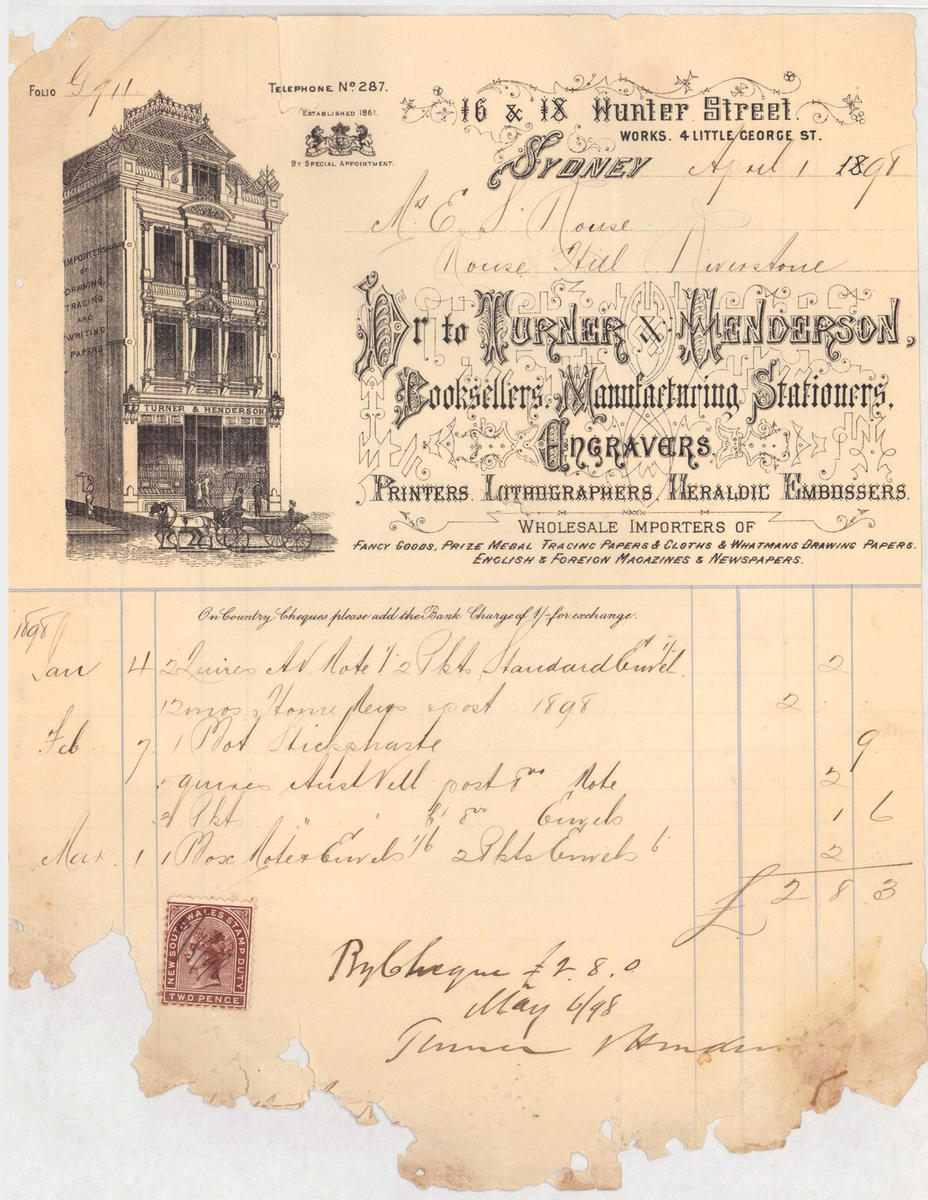 FOLIO G 911
TELEPHONE No 287.
ESTABLISHED 1861.
BY SPECIAL APPOINTMENT.
16 & 18 Hunter Street.
WORKS. 4 LITTLE GEORGE ST.
SYDNEY April 1 1898
Ms E. S. Rouse
Rouse Hill Riverstone
IMPORTERS
OF
DRAWING
TRACING
AND
WRITING
PAPERS
TURNER & HENDERSON
Dr to TURNER & HENDERSON,
Booksellers, Manufacturing Stationers,
ENGRAVERS.
PRINTERS. LITHOGRAPHERS, HERALDIC EMBOSSERS.
WHOLESALE IMPORTERS OF
FANCY GOODS, PRIZE MEDAL TRACING PAPERS & CLOTHS & WHATMANS DRAWING PAPERS.
ENGLISH & FOREIGN MAGAZINES & NEWSPAPERS.
On Country Cheques please add the Bank Charge of 1/- for exchange.
1898
Jan 4 2 Quires A.V. Note 1/ 2 Pkts Standard Envel 1/ 2
12 mos Home News & post 1898 2
Feb 7 1 Bot Stickphaste 9
5 quires Aust Vell post 8vo Note 2
3 Pkts " " 6 8vo Envels 1 6
Mar 1 1 Box Note & Envels 1/6 2 Pkts Envels 6 2
£ 2 8 3
NEW SOUTH WALES STAMP DUTY
TWO PENCE
By Cheque £2.8.0
May 6/98
Turner & Henderson